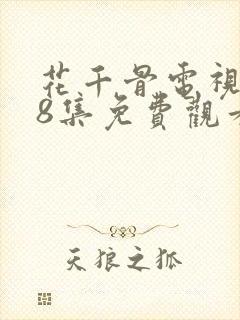 花千骨電視
8集免費觀看
天狼之狐